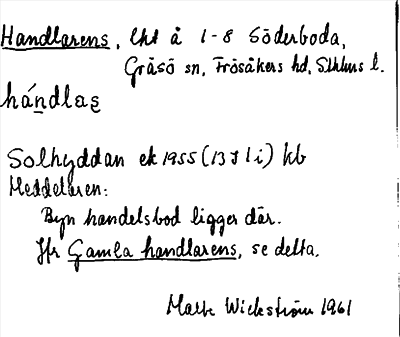 Handlarens, lht å 1-8 Söderboda,
Gräsö sn, Frösåkers hd, Sthlms l.
hándlas
Solhyddan ek 1955 (13 J 1 i) kb
Meddelaren:
Byn handelsbod ligger där.
Jfr Gamla handlarens, se detta.
Marte Wickström 1961